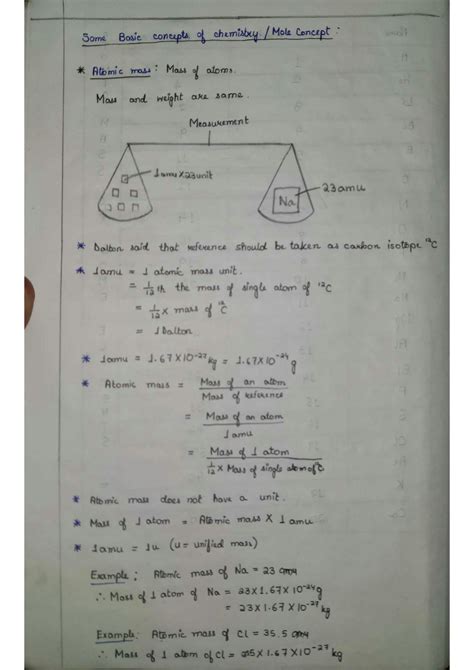 Some Basic concepts of chemistry / Mole Concept :
* Atomic mass : Mass of atoms.
Mass and weight are same.
Measurement
1amu X 23 unit
23 amu
Na
* Dalton said that reference should be taken as carbon isotope ¹²C
* 1amu = 1 atomic mass unit.
= 1/12 th the mass of single atom of ¹²C
= 1/12 x mass of ¹²C
= 1 Dalton
* 1amu = 1.67 X 10⁻²⁷ kg = 1.67X10⁻²⁴ g
* Atomic mass = Mass of an atom / Mass of reference
= Mass of an atom / 1 amu
= Mass of 1 atom / 1/12 x Mass of single atom of C
* Atomic mass does not have a unit.
* Mass of 1 atom = Atomic mass X 1 amu
* 1amu = 1u (u = unified mass)
Example : Atomic mass of Na = 23 amu
∴ Mass of 1 atom of Na = 23 X 1.67 X 10⁻²⁴g
= 23 X 1.67 X 10⁻²⁷ kg
Example: Atomic mass of Cl = 35.5 amu
∴ Mass of 1 atom of Cl = X 1.67 X 10⁻²⁷ kg